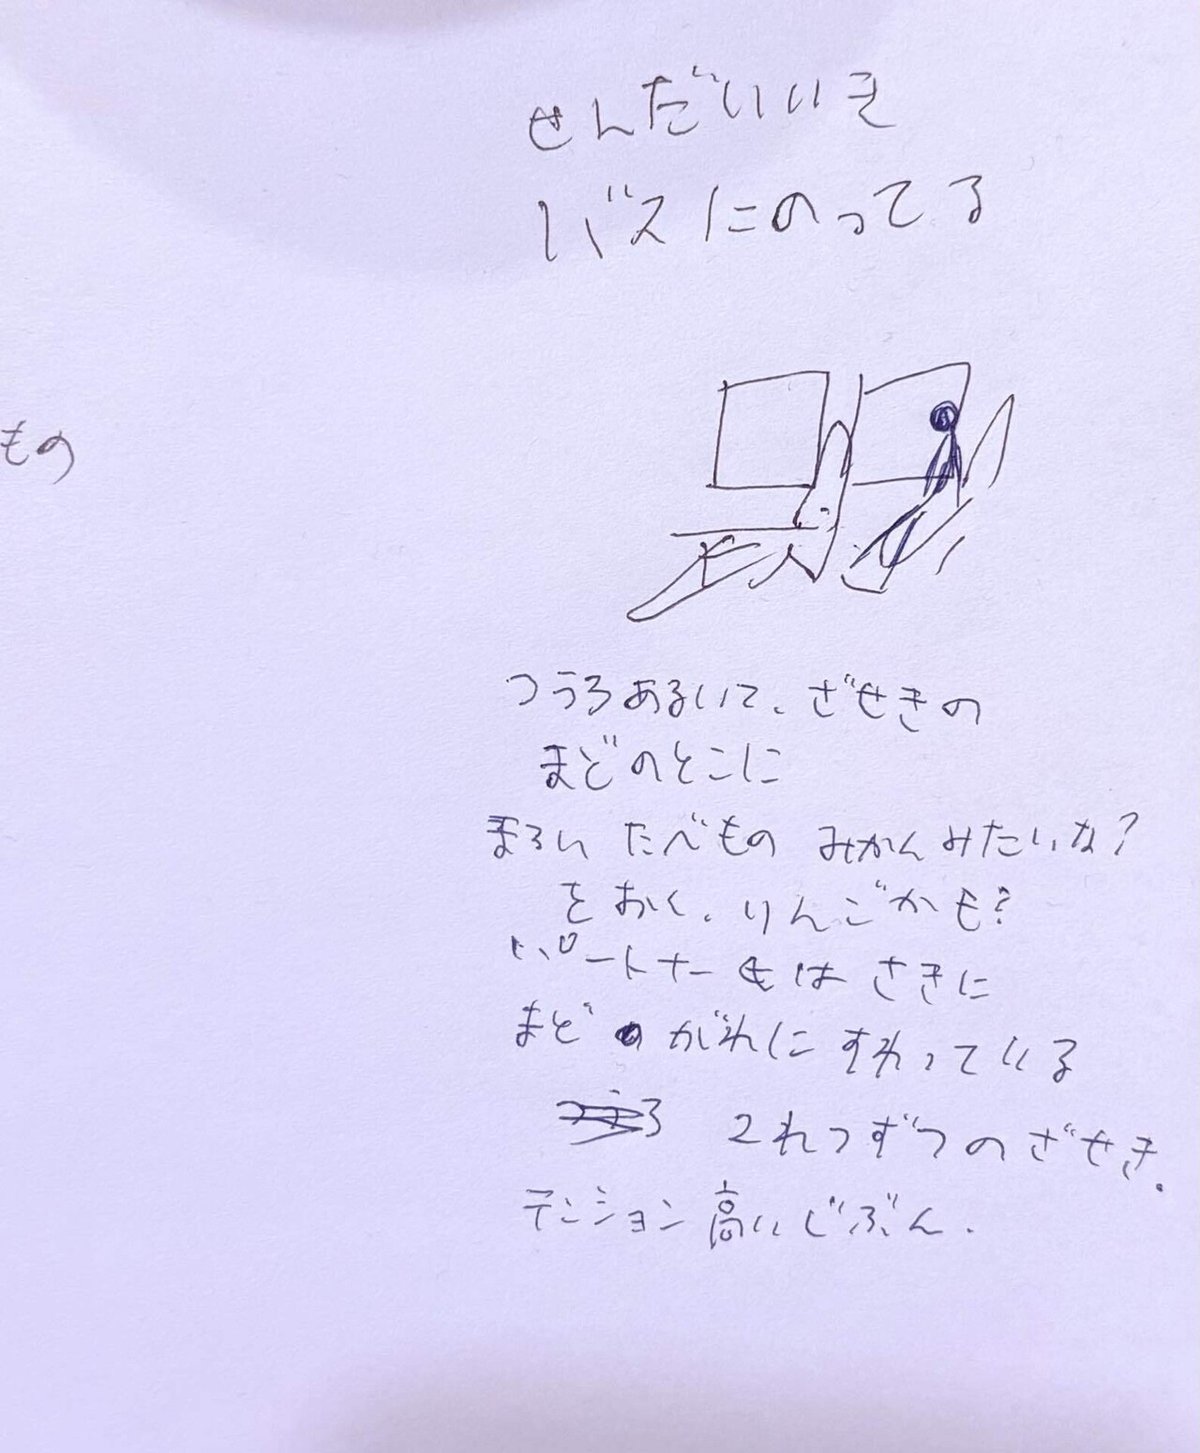 せんだいいき
バスにのってる
もの
つうろあるいて、ざせきの
まどのとこに
まるい たべもの みかんみたいな?
をおく、りんごかも?
パートナーは さきに
まど がわに すわっている
2れつずつのざせき.
テンション高いじぶん.